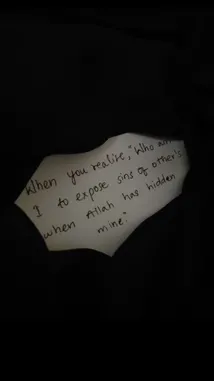 When you realise, "Who am
I to expose sins of other's
when Allah has hidden
mine."